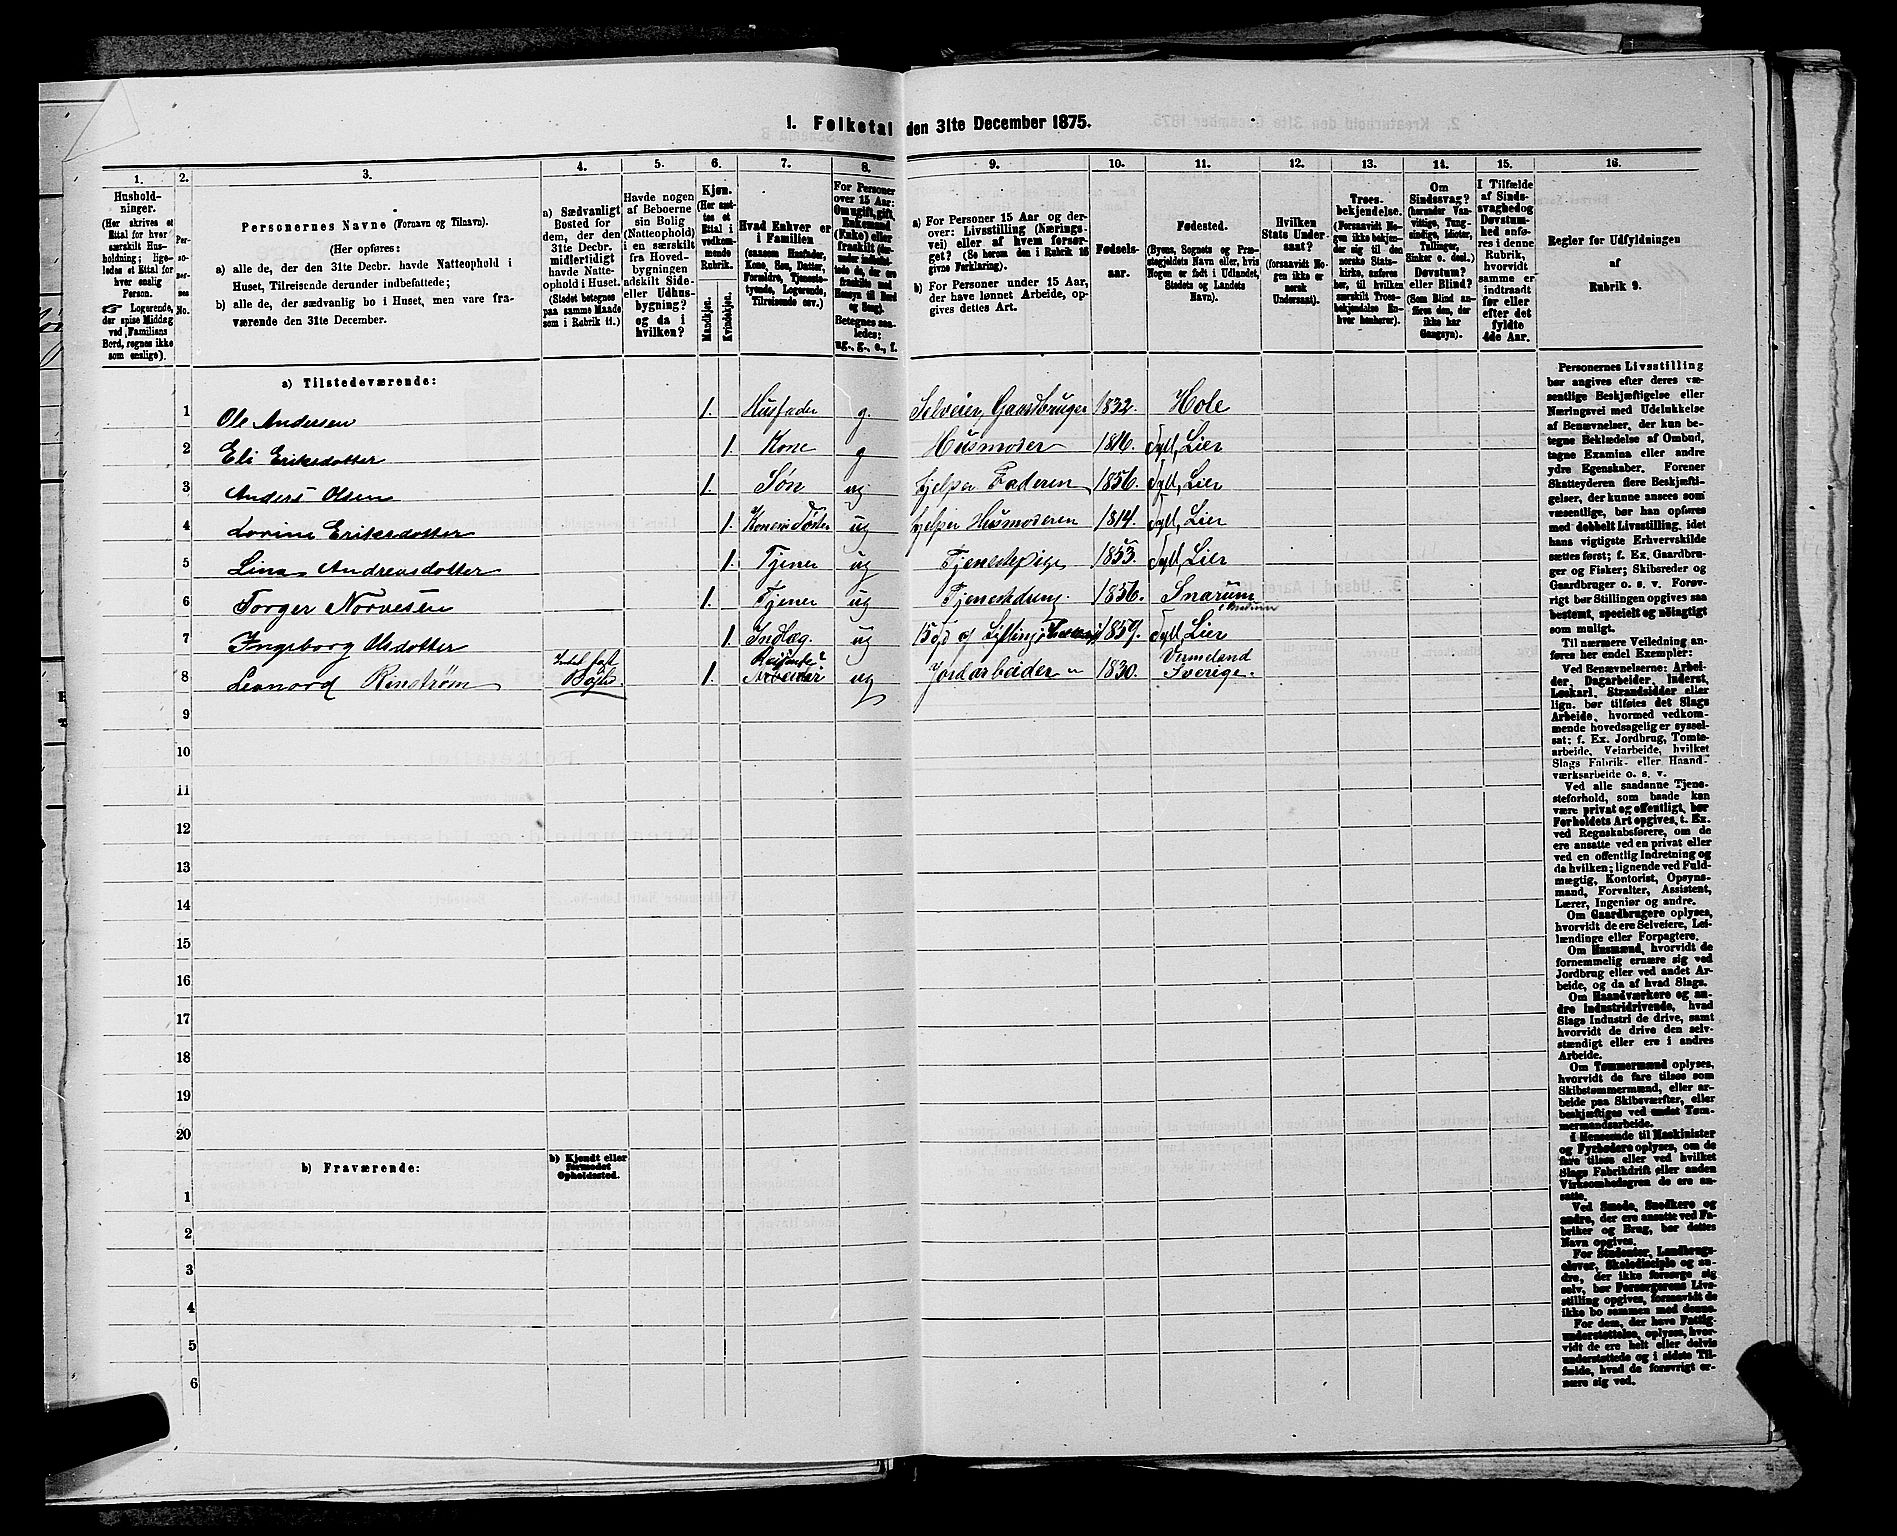 1. Folketal den 31te December 1875.
1.
2.
3.
4.
5.
6.
7.
8.
9.
10.
11.
12.
13.
14.
15.
16.
Hushold-
ninger.
(Her skrives et
Ettal for hver
særskilt Hus-
holdning; lige-
ledes et Ettal for
hver enslig
Person.
☞ Logerende,
der spise Middag
ved Familiens
Bord, regnes ikke
som enslige).
Per-
so-
ner-
nes
No.
Personernes Navne (Fornavn og Tilnavn).
(Her opføres:
a) alle de, der den 31te Decbr. havde Natteophold i
Huset, Tilreisende derunder indbefattede;
b) alle de, der sædvanlig bo i Huset, men vare fra-
værende den 31te December.
a) Sædvanligt
Bosted for
dem, der den
31te Decbr.
midlertidigt
havde Natte-
ophold i Huset.
(Stedet betegnes
paa samme Maade
som i Rubrik 11.)
Havde nogen
af Beboerne
sin Bolig
(Natteophold)
i en særskilt
fra Hoved-
bygningen
adskilt Side-
eller Udhus-
bygning?
og da i
hvilken?
Kjøn.
(Her sæt-
tes et
Ettal i
vedkom-
mende
Rubrik.
Mandkjøn.
Kvindekjøn.
Hvad Enhver er
i Familien
(saasom Husfader,
Kone, Søn, Datter,
Forældre, Tjeneste-
tyende, Logerende,
Tilreisende osv.)
For Personer
over 15 Aar:
Om ugift, gift,
Enkemand
(Enke) eller
fraskilt (her-
under indbefat-
tede de, der ere
fraskilte med
Hensyn til Bord
og Seng).
Betegnes saa-
ledes:
ug., g., e., f.
a) For Personer 15 Aar og der-
over: Livsstilling (Nærings-
vei) eller af hvem forsør-
get? (Se herom den i Rubrik 16
givne Forklaring).
b) For Personer under 15 Aar,
der have lønnet Arbeide, op-
gives dettes Art.
Fødsels-
aar.
Fødested.
(Byens, Sognets og Præ-
stegjeldets Navn eller, hvis
Nogen er født i Udlandet,
Stedets og Landets
Navn).
Hvilken
Stats Under-
saat?
(forsaavidt No-
gen ikke er
norsk
Undersaat).
Troes-
bekjendelse.
(Forsaavidt No-
gen ikke bekjen-
der sig til den
norske Stats-
kirke, anføres
her, til hvilken
særskilt Troes-
bekjendelse En-
hver henhører).
Om
Sindssvag?
(herunder Van-
vittige, Tung-
sindige, Idioter,
Tullinger,
Sinker o. desl.)
Døvstum?
eller Blind?
(Som Blind an-
føres den, der
ikke har
Gangsyn).
I Tilfælde
af Sinds-
svaghed og
Døvstum-
hed anfø-
res i denne
Rubrik,
hvorvidt
samme er
indtraadt
før eller
efter det
fyldte
4de Aar.
Regler for Udfyldningen
af
Rubrik 9.
a) Tilstedeværende:
1 Ole Andersen 1. Husfader g. Selveier, Gaardbruger 1832. Hole
2 Eli Eriksdotter 1. Kone g Husmoder 1816. Syll, Lier
3 Anders Olsen 1. Søn ug. hjelper Faderen 1856. Syll, Lier
4 Lovine Eriksdotter 1. Konens Søster ug hjelper Husmoderen 1814. Syll, Lier
5 Lina Andreasdotter 1. Tjener ug Tjenestepige 1853. Syll, Lier
6 Torger Norvesen 1. Tjener ug Tjenestedreng. 1856. Snarum
i Modum
7 Ingeborg Olsdotter 1. Indlæg. ug 1859. Syll, Lier
8 Leonard Rinstrøm Intet fast Bosted. 1. Reisende Arbeider ug Jordarbeider 1830. Vermeland Sverige.
9
10
11
12
13
14
15
16
17
18
19
20
b) Fraværende:
b) Kjendt eller
formodet
Opholdssted.
1
2
3
4
5
6
Personernes Livsstilling
bør angives efter deres væ-
sentlige Beskjæftigelse eller
Næringsvei med Udelukkelse
af Benævnelser, der kun be-
tegne Beklædelse af Ombud,
tagne Examina eller andre
ydre Egenskaber. Forener
Skatteyderen flere Beskjæfti-
gelser, der kunne ansees som
væsentlige, bør han opføres
med dobbelt Livsstilling, idet
hans vigtigste Erhvervskilde
sættes først; f. Ex. Gaardbru-
ger og Fisker; Skibsreder og
Gaardbruger o. s. v. Forøv-
rigt bør Stillingen opgives saa
bestemt, specielt og nøiagtigt
som muligt.
Til nærmere Veiledning an-
føres her endel Exempler:
Ved Benævnelserne: Arbei-
der, Dagarbeider, Inderst,
Løskarl, Strandsidder eller
lign. bør tilføies det Slags
Arbeide, hvormed vedkom-
mende hovedsagelig er syssel-
sat; f. Ex. Jordbrug, Tomte-
arbeide, Veiarbeide, hvilket
Slags Fabrik- eller Haand-
værksarbeide o. s. v.
Ved alle saadanne Tjene-
steforhold, som baade kan
være privat og offentligt, bør
Forholdets Art opgives, t. Ex.
ved Regnskabsførere, om de
ere ansatte ved en privat eller
ved en offentlig Indretning og
da hvilken; lignende ved Fuld-
mægtig, Kontorist, Opsyns-
mand, Forvalter, Assistent,
Lærer, Ingeniør og andre.
Om Gaardbrugere oplyses,
hvorvidt de ere Selveiere, Lei-
lændinge eller Forpagtere.
Om Husmænd, hvorvidt de
fornemmelig ernære sig ved
Jordbrug eller ved andet Ar-
beide, og da af hvad Slags.
Om Haandværkere og an-
dre Industridrivende, hvad
Slags Industri de drive, samt
hvorvidt de drive den selv-
stændigt eller ere i andres
Arbeide.
Om Tømmermænd oplyses,
hvorvidt de fare tilsøs som
Skibstømmermænd, eller ar-
beide paa Skibsværfter, eller
beskjæftiges ved andet Tøm-
mermandsarbeide.
I Henseende til Maskinister
og Fyrbødere oplyses, om de
fare tilsøs eller ved hvilket
Slags Fabrikdrift eller anden
Virksomhedsgren de ere an-
satte.
Ved Smede, Snedkere og
andre, der ere ansatte ved Fa-
briker og Brug, bør dettes
Navn opgives.
For Studenter, Landbrugs-
elever, Skoledisciple og an-
dre, der ikke forsørge sig
selv, bør Forsørgerens Livs-
stilling opgives, forsaavidt de
ikke bo sammen med denne.
For dem, der have Fattig-
understøttelse, oplyses, hvor-
vidt de ere helt eller delvis
understøttede og i sidste Til-
fælde, hvad de forøvrigt er-
nære sig ved.